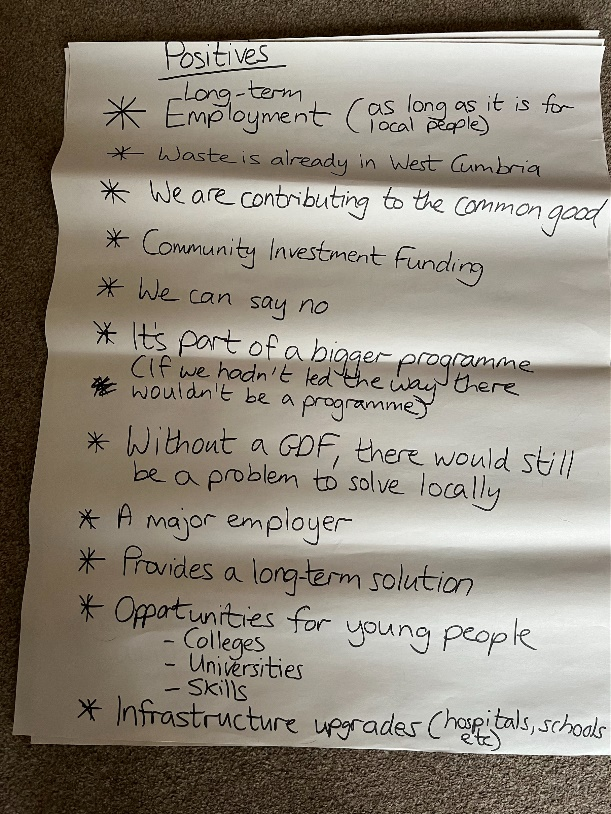 Positives
Long-term
* Employment (as long as it is for
local people)
* Waste is already in West Cumbria
* We are contributing to the common good
* Community Investment Funding
* We can say no
* It's part of a bigger programme
(If we hadn't led the way there
* wouldn't be a programme)
* Without a GDF, there would still
be a problem to solve locally
* A major employer
* Provides a long-term solution
* Opportunities for young people
- Colleges
- Universities
- Skills
* Infrastructure upgrades (hospitals, schools
etc)